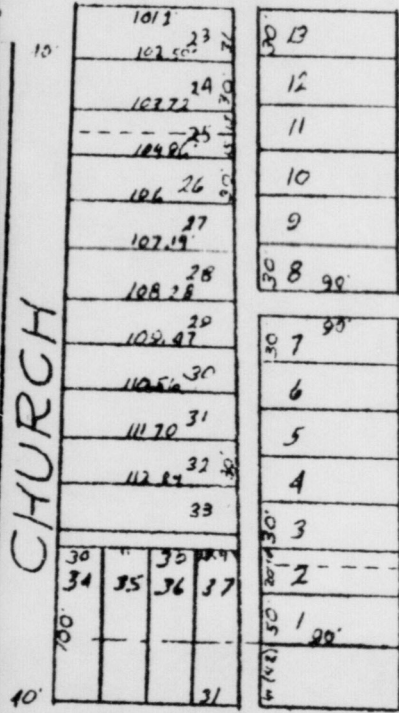 10'
CHURCH
40'
23
102.50'
24
30'
103.72
25
104.86
26
30'
106
27
107.19'
28
108.28
29
109.47
30
110.56
31
111.70
32
30'
112.84
33
30
34
35
30
36
37
100'
31
30'
13
12
11
10
9
30'
8
90'
90'
30'
7
6
5
4
30'
3
2
50'
1
90'